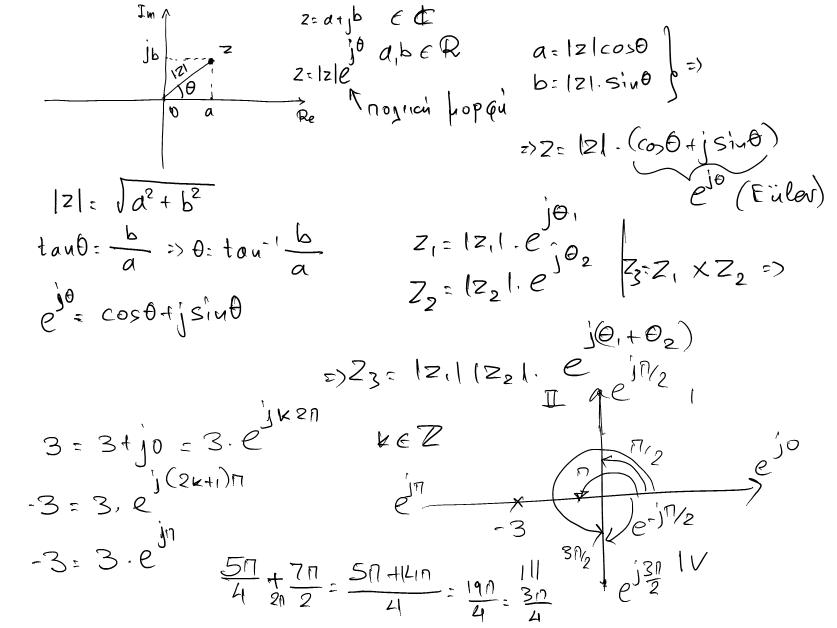 Im
jb
z
|z|
θ
0 a Re
z = a + jb ∈ ℂ
z = |z|e^{jθ} a,b ∈ ℝ
πολική μορφή
a = |z|cosθ
b = |z|·sinθ
⇒
⇒ z = |z|·(cosθ + j sinθ)
e^{jθ} (Eüler)
|z| = √(a² + b²)
tanθ = b/a ⇒ θ = tan⁻¹ b/a
e^{jθ} = cosθ + j sinθ
z₁ = |z₁|·e^{jθ₁}
z₂ = |z₂|·e^{jθ₂}
z₃ = z₁ × z₂ ⇒
⇒ z₃ = |z₁||z₂|·e^{j(θ₁+θ₂)}
3 = 3 + j0 = 3·e^{jk2π} k ∈ ℤ
-3 = 3·e^{j(2k+1)π}
-3 = 3·e^{jπ}
II e^{jπ/2} I
π/2
π
e^{j0}
e^{jπ}
-3
e^{-jπ/2}
3π/2
III e^{j3π/2} IV
5π/4 + 7π/2 = (5π+14π)/4 = 19π/4 = 3π/4
2π